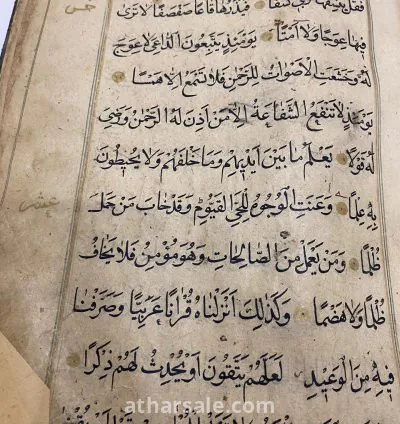 فقل ينسفها ربي نسفا فيذرها قاعا صفصفا لا ترى
فيها عوجا ولا أمتا يومئذ يتبعون الداعي لا عوج
له وخشعت الأصوات للرحمن فلا تسمع إلا همسا
يومئذ لا تنفع الشفاعة إلا من أذن له الرحمن ورضي
له قولا يعلم ما بين أيديهم وما خلفهم ولا يحيطون
به علما وعنت الوجوه للحي القيوم وقد خاب من حمل
ظلما ومن يعمل من الصالحات وهو مؤمن فلا يخاف
ظلما ولا هضما وكذلك أنزلناه قرآنا عربيا وصرفنا
فيه من الوعيد لعلهم يتقون أو يحدث لهم ذكرا
عشر
atharsale.com